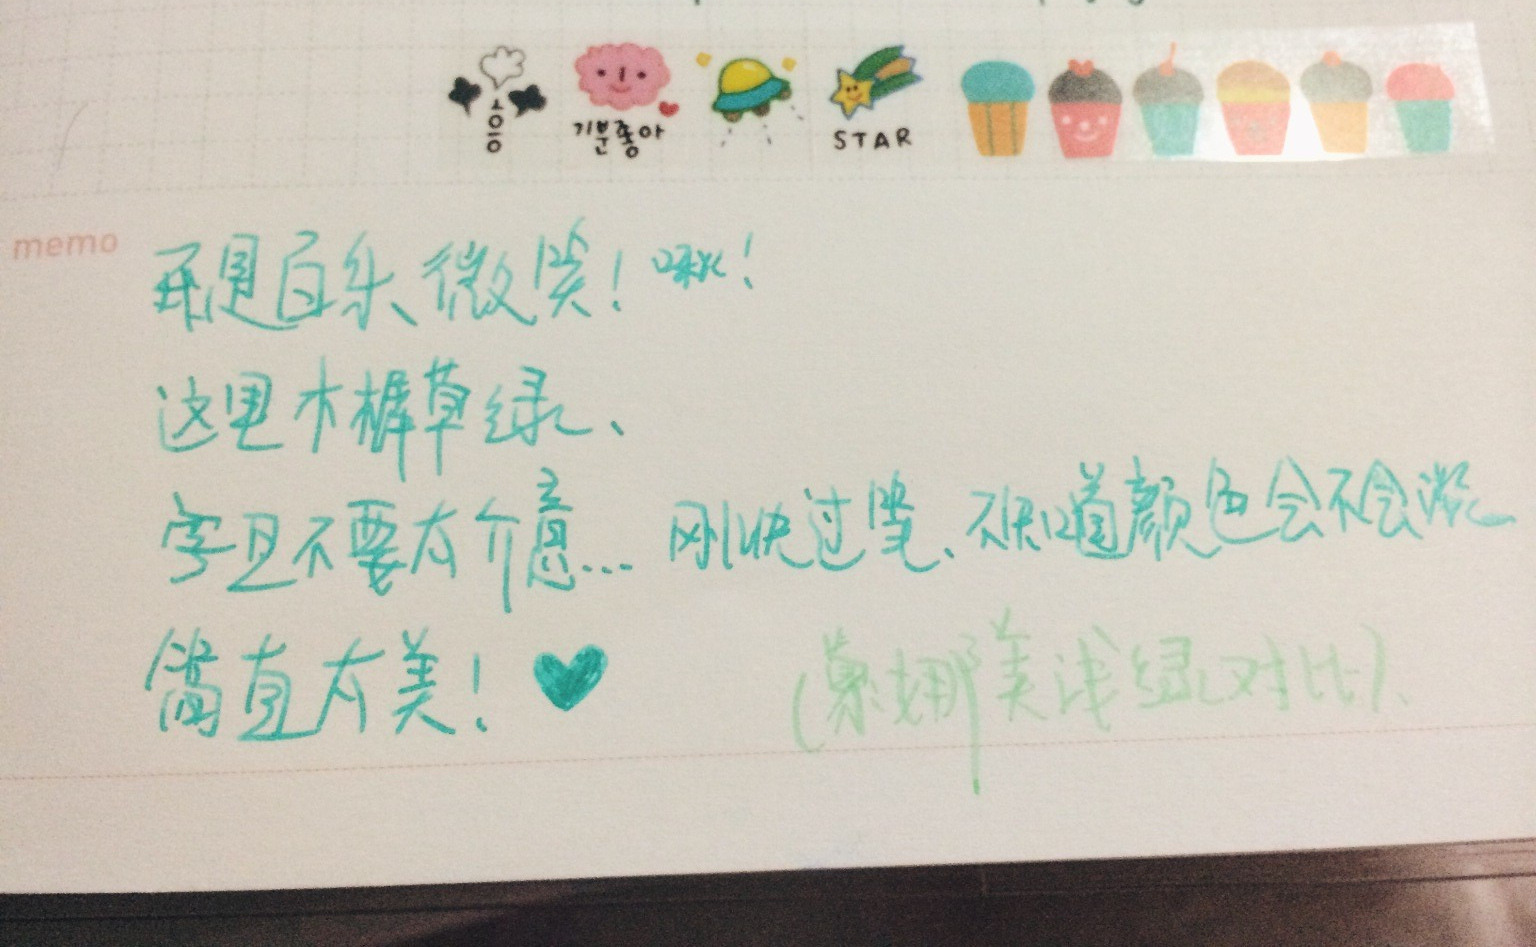 슝응
기분좋아
STAR
memo
再是百乐微笑！啾！
这里木樨草绿、
字且不要太介意... 刚快过笔、不知道颜色会不会淡
简直太美！
(慕娜美浅绿对比)、